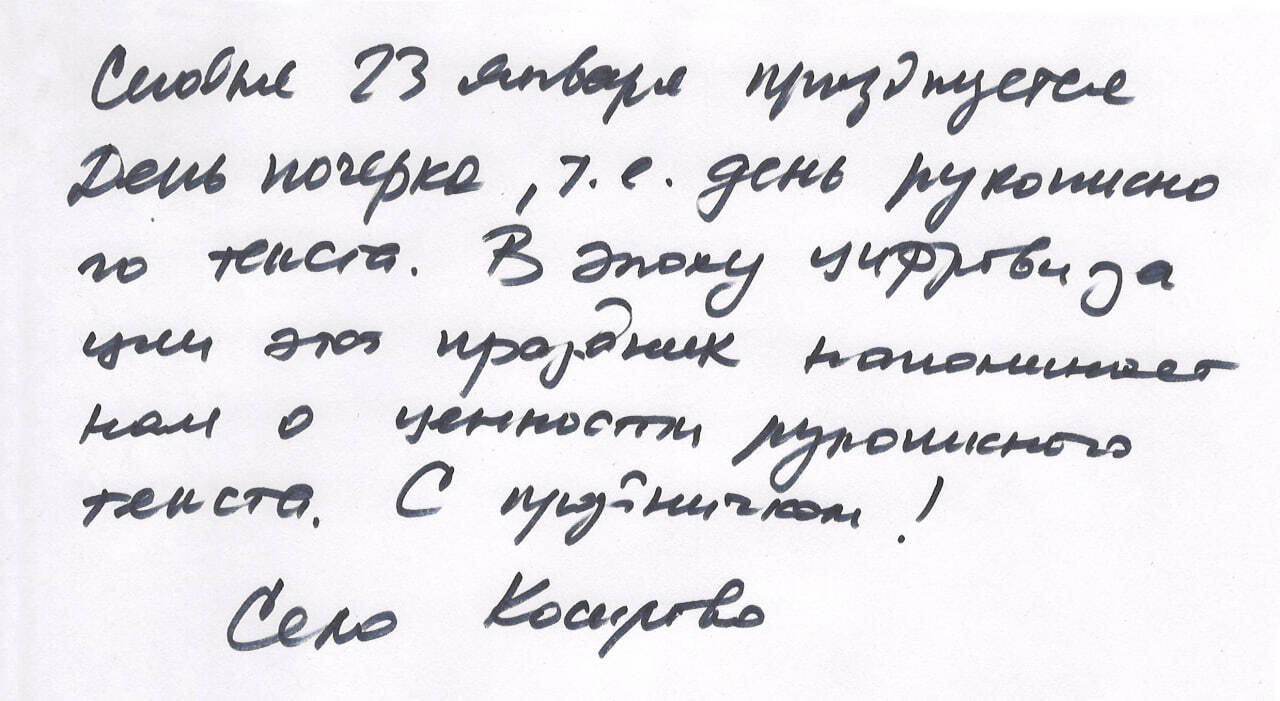 Сегодня 23 января празднуется
День почерка, т.е. день рукописно
го текста. В эпоху цифровиза
ции этот праздник напоминает
нам о ценности рукописного
текста. С праздничком!
Село